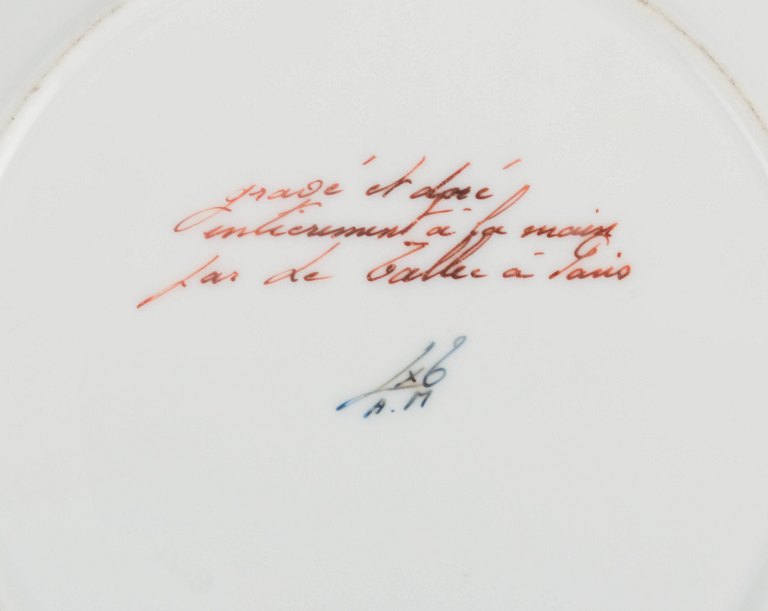 gravé et doré
entièrement à la main
par Le Tallec à Paris
A.M